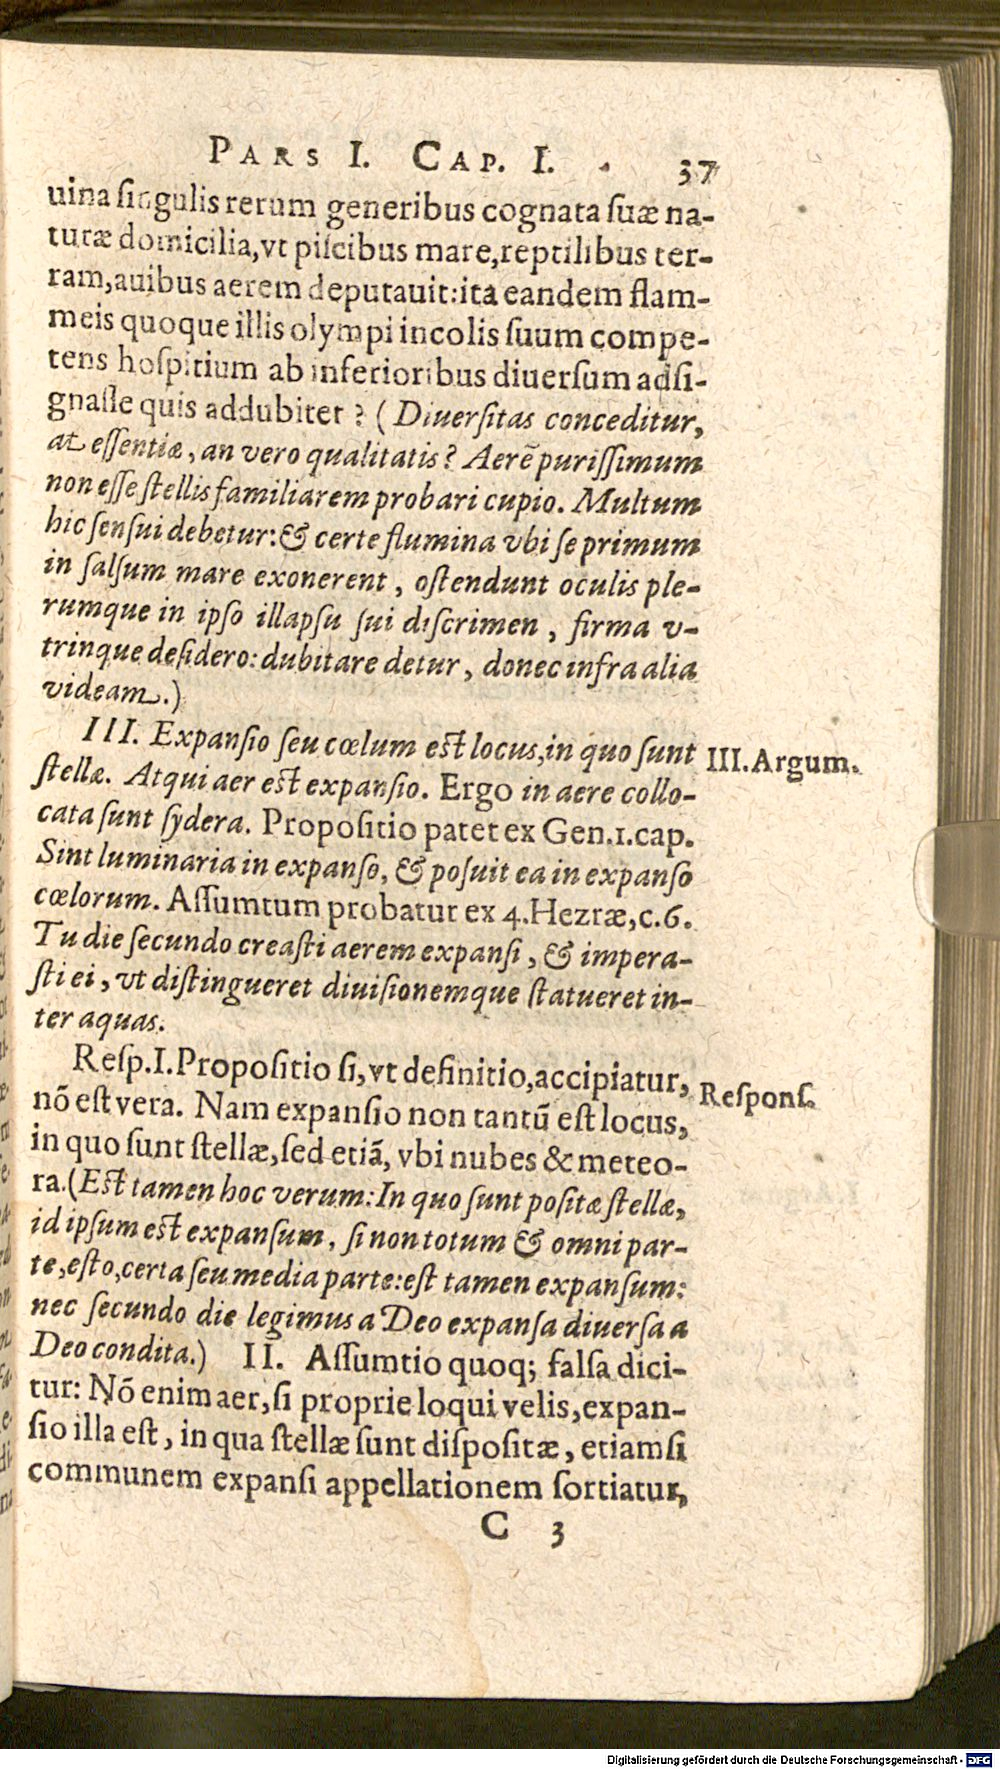 PARS I. CAP. I. 37
uina ſingulis rerum generibus cognata ſuæ na-
turæ domicilia, vt piſcibus mare, reptilibus ter-
ram, auibus aerem deputauit: ita eandem flam-
meis quoque illis olympi incolis ſuum compe-
tens hoſpitium ab inferioribus diuerſum adſi-
gnaſſe quis addubitet? (Diuerſitas conceditur,
at eſſentiæ, an vero qualitatis? Aerē puriſſimum
non eſſe ſtellis familiarem probari cupio. Multum
hic ſenſui debetur: & certe flumina vbi ſe primum
in ſalſum mare exonerent, oſtendunt oculis ple-
rumque in ipſo illapſu ſui diſcrimen, firma v-
trinque deſidero: dubitare detur, donec infra alia
videam.)
III. Expanſio ſeu cœlum eſt locus, in quo ſunt
III. Argum.
ſtellæ. Atqui aer eſt expanſio. Ergo in aere collo-
cata ſunt ſydera. Propoſitio patet ex Gen. 1. cap.
Sint luminaria in expanſo, & poſuit ea in expanſo
cœlorum. Aſſumtum probatur ex 4. Hezræ, c. 6.
Tu die ſecundo creaſti aerem expanſi, & impera-
ſti ei, vt diſtingueret diuiſionemque ſtatueret in-
ter aquas.
Reſp. I. Propoſitio ſi, vt definitio, accipiatur,
Reſponſ.
nō eſt vera. Nam expanſio non tantū eſt locus,
in quo ſunt ſtellæ, ſed etiā, vbi nubes & meteo-
ra. (Eſt tamen hoc verum: In quo ſunt poſitæ ſtellæ,
id ipſum eſt expanſum, ſi non totum & omni par-
te, eſto, certa ſeu media parte: eſt tamen expanſum:
nec ſecundo die legimus a Deo expanſa diuerſa a
Deo condita.) II. Aſſumtio quoq; falſa dici-
tur: Nō enim aer, ſi proprie loqui velis, expan-
ſio illa eſt, in qua ſtellæ ſunt diſpoſitæ, etiamſi
communem expanſi appellationem ſortiatur,
C 3
Digitalisierung gefördert durch die Deutsche Forschungsgemeinschaft - DFG